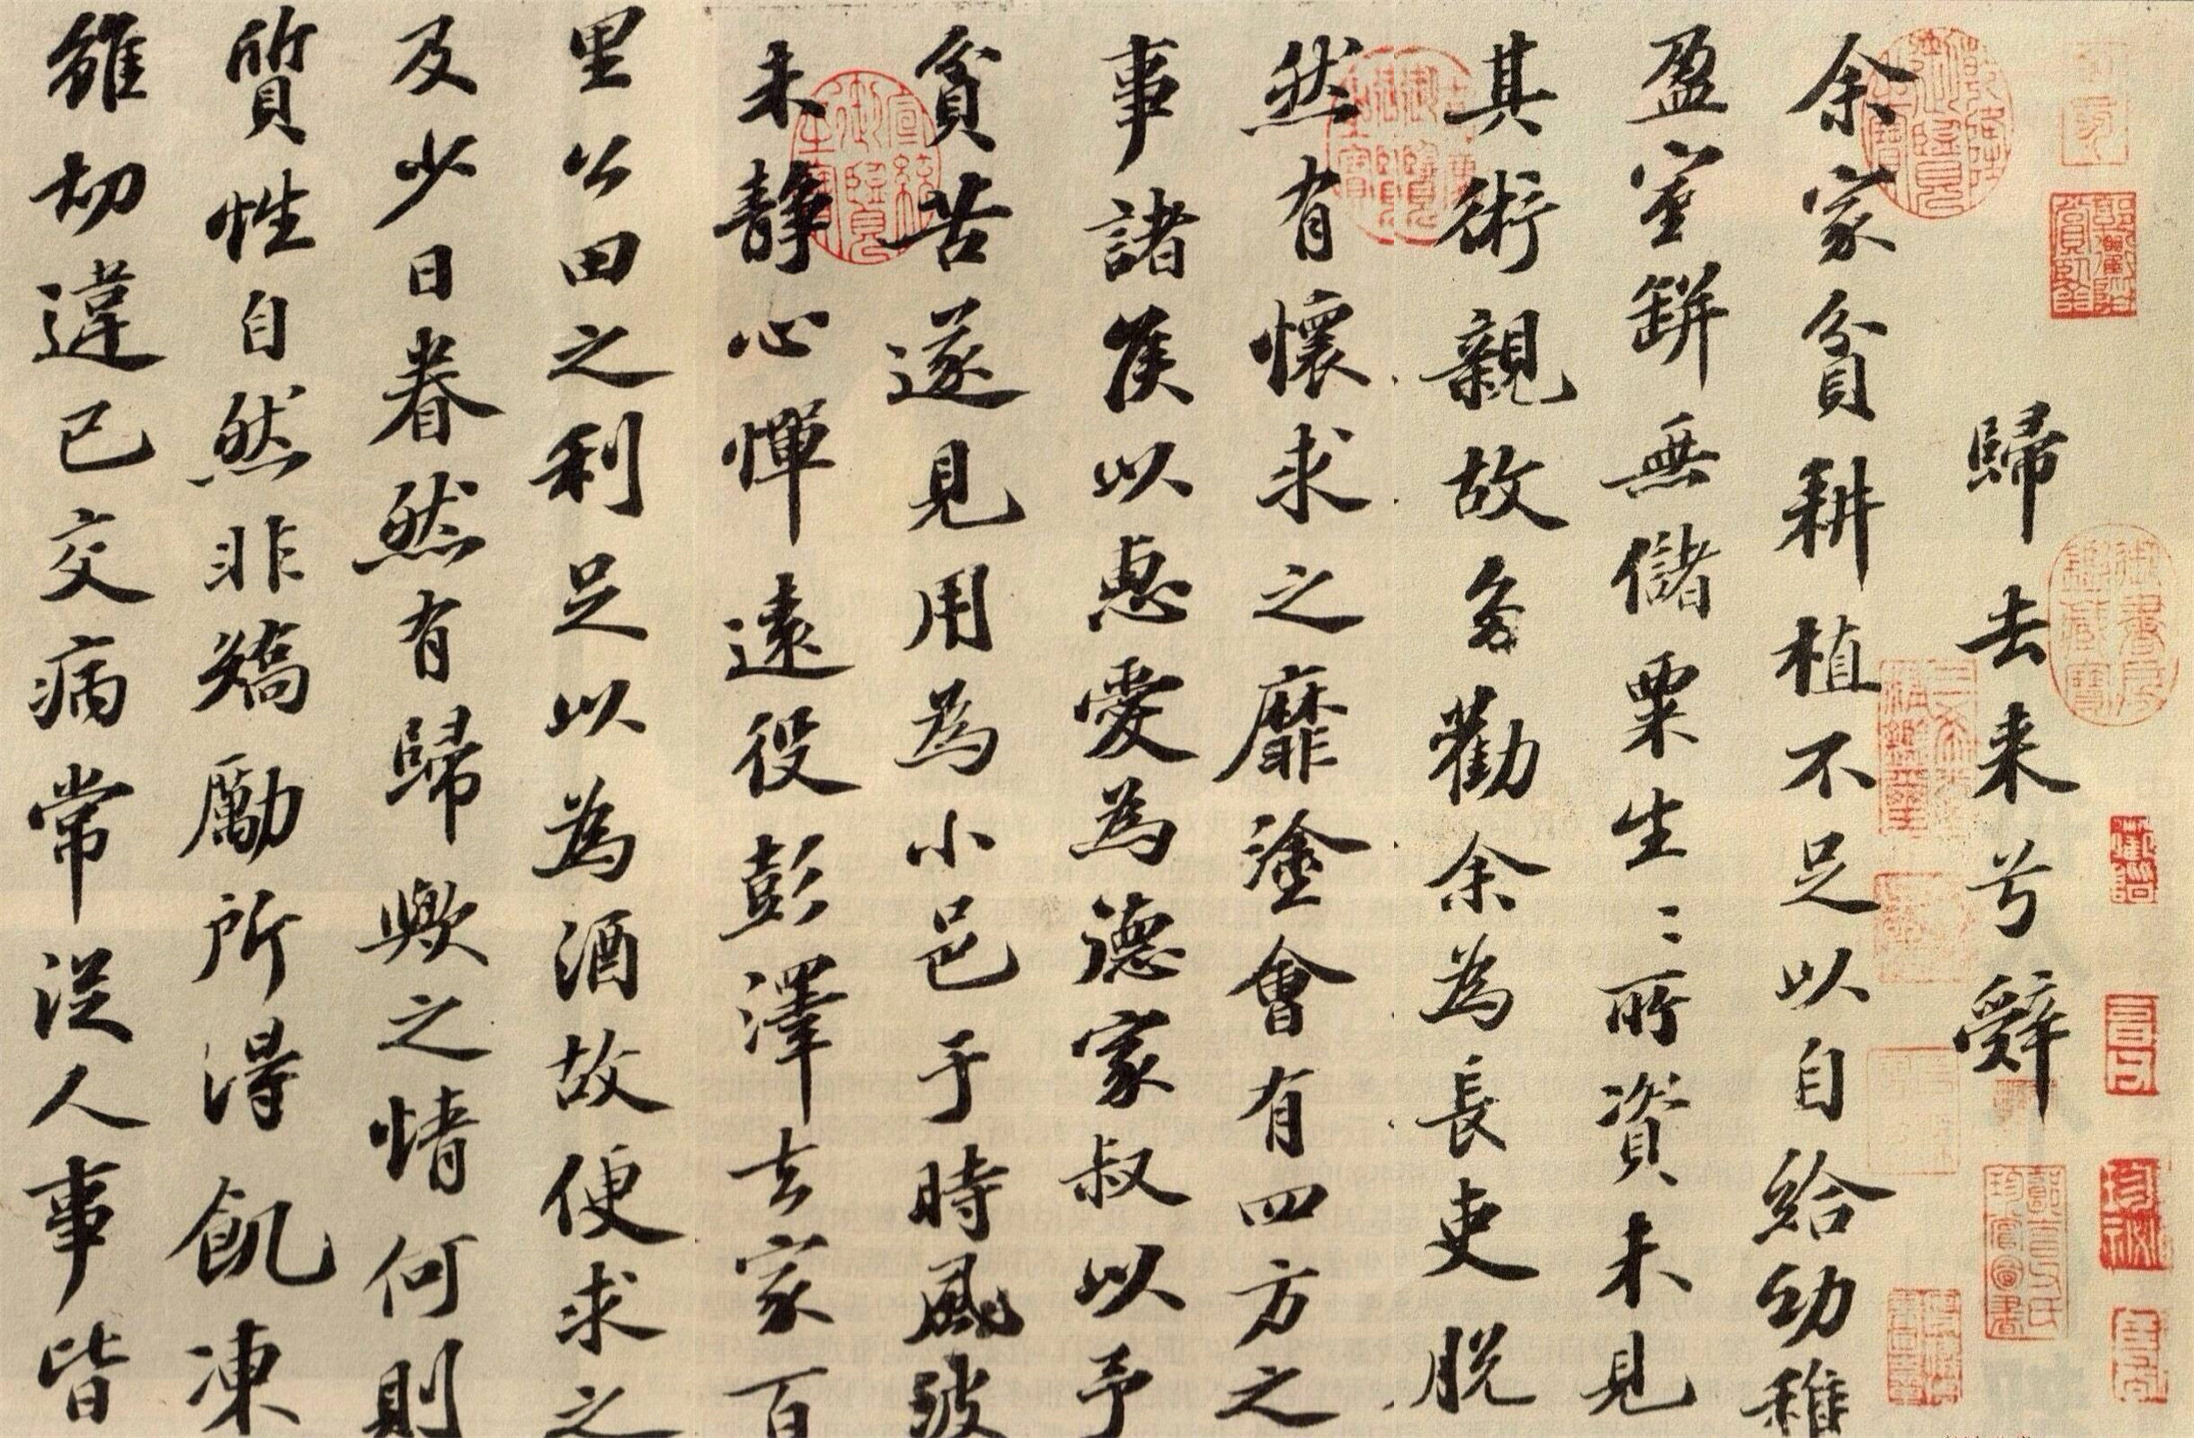 歸去来兮辭
余家貧耕植不足以自給幼稚
盈室缾無儲粟生〻所資未見
其術親故多勸余為長吏脱
然有懷求之靡塗會有四方之
事諸侯以惠愛為德家叔以予
貧苦遂見用為小邑于時風波
未静心憚遠役彭澤去家百
里公田之利足以為酒故便求之
及少日眷然有歸歟之情何則
質性自然非矯勵所得飢凍
雖切違己交病常從人事皆
御書房鑑藏寶
三希堂精鑑璽
宣統御覽之寶